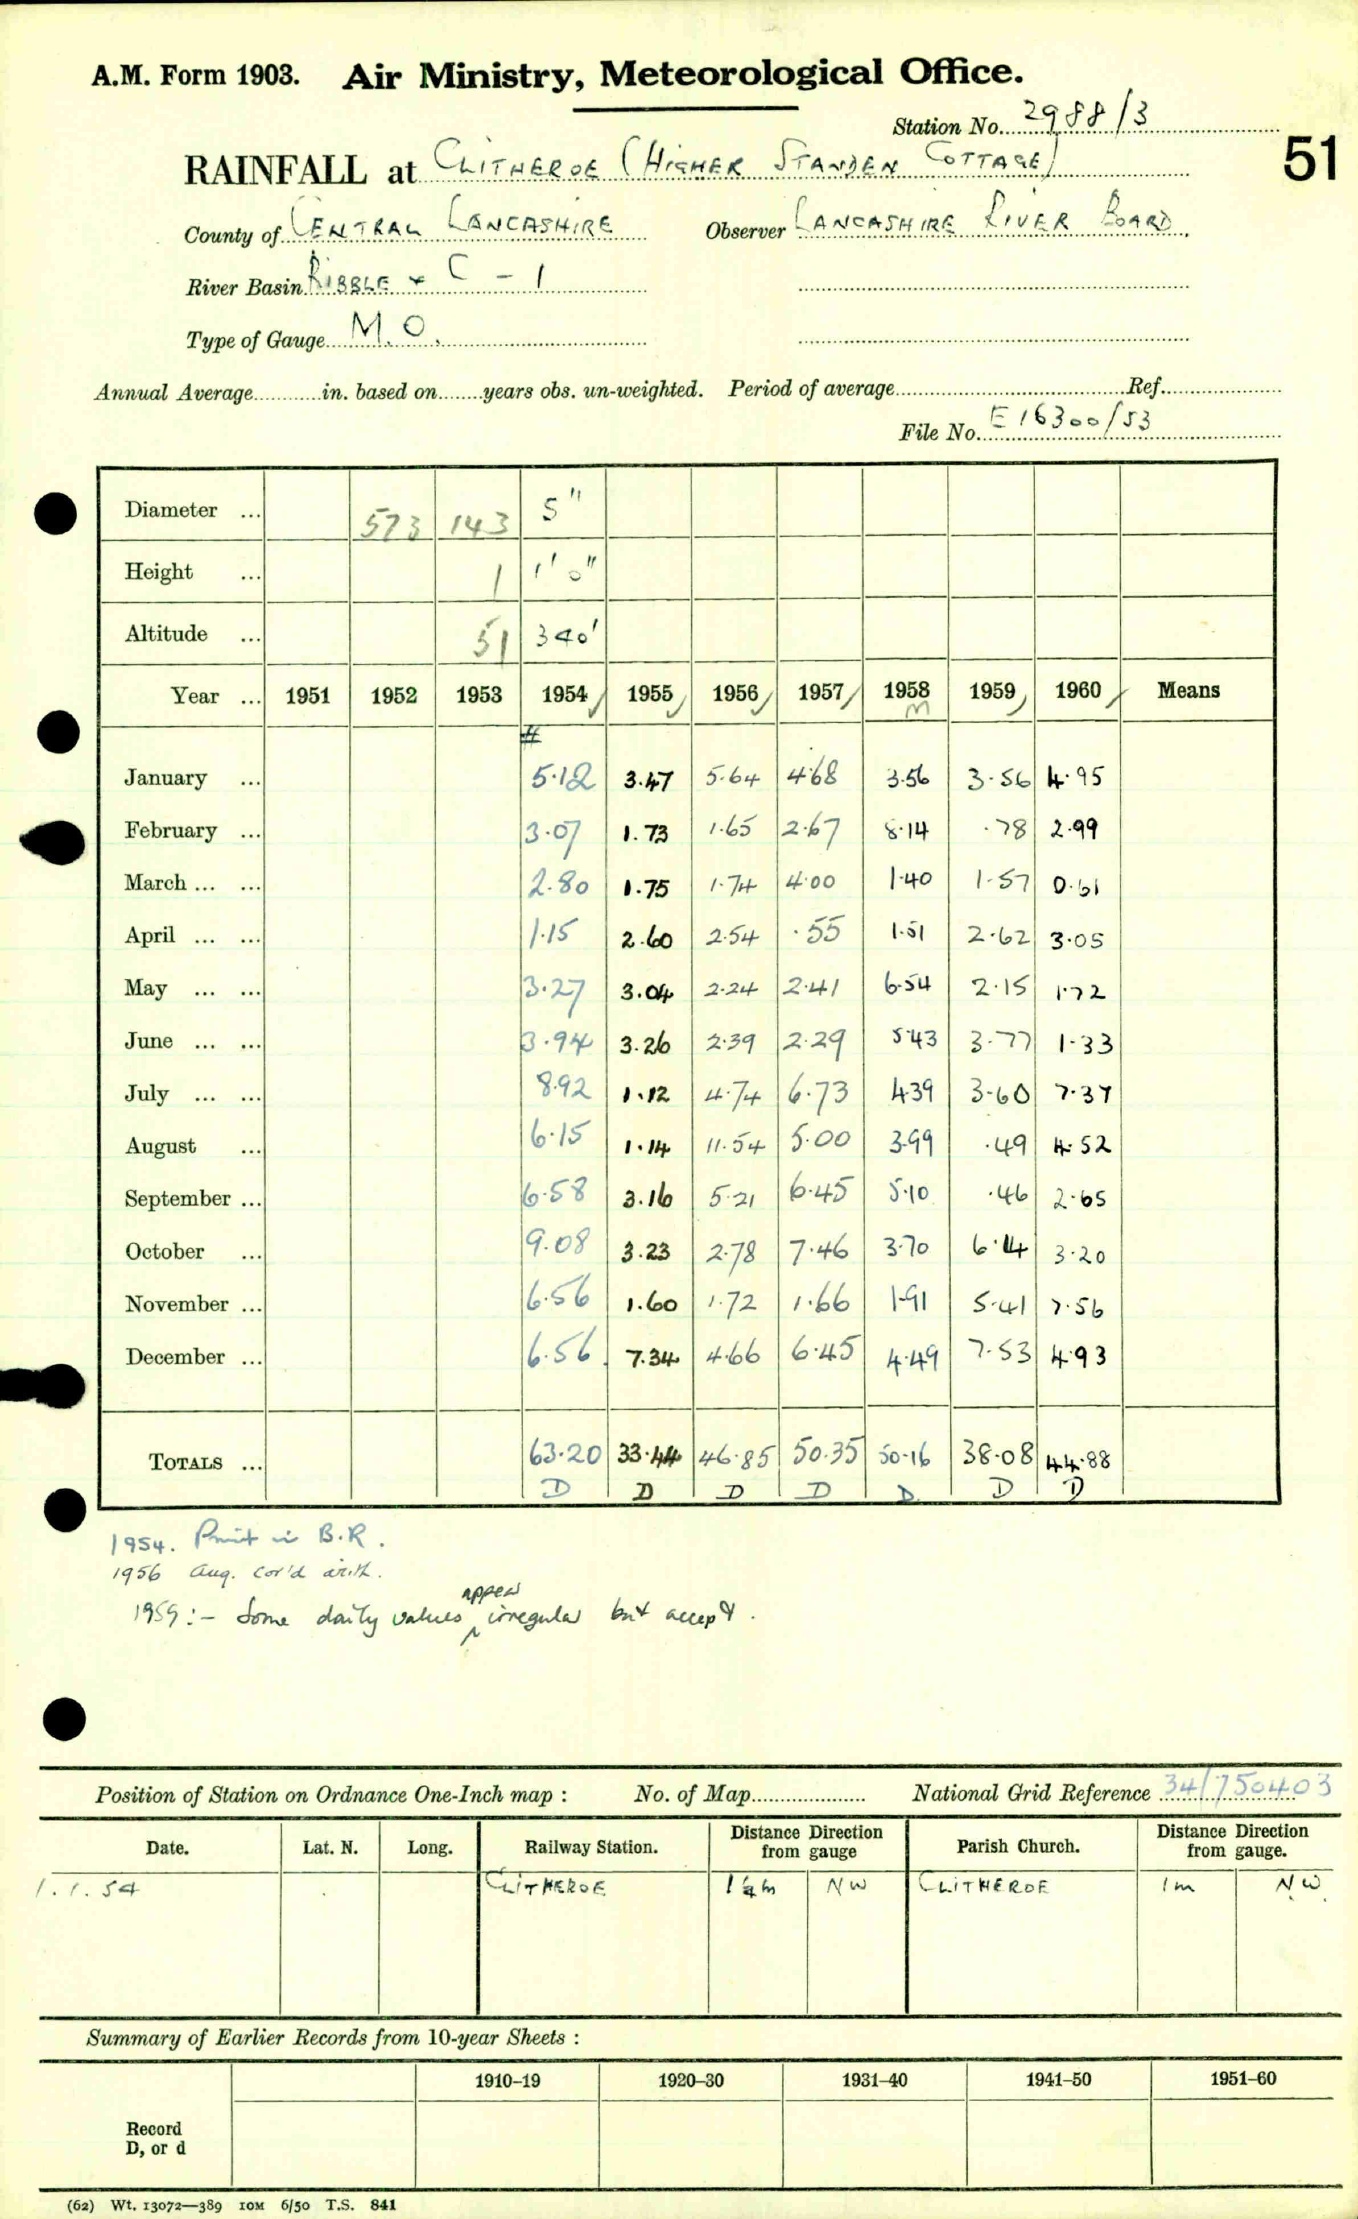 A.M. Form 1903. Air Ministry, Meteorological Office.
Station No. 2988/3
51
RAINFALL at CLITHEROE (HIGHER STANDEN COTTAGE)
County of CENTRAL LANCASHIRE Observer LANCASHIRE RIVER BOARD
River Basin RIBBLE + C - 1
Type of Gauge M.O.
Annual Average in. based on years obs. un-weighted. Period of average Ref.
File No. E16300/53
Diameter ... 573 143 5"
Height ... 1 1' 0"
Altitude ... 51 340'
Year ... 1951 1952 1953 1954 1955 1956 1957 1958 1959 1960 Means
M
#
January ... 5.12 3.47 5.64 4.68 3.56 3.56 4.95
February ... 3.07 1.73 1.65 2.67 8.14 .78 2.99
March ... ... 2.80 1.75 1.74 4.00 1.40 1.57 0.61
April ... ... 1.15 2.60 2.54 .55 1.51 2.62 3.05
May ... ... 3.27 3.04 2.24 2.41 6.54 2.15 1.72
June ... ... 3.94 3.26 2.39 2.29 5.43 3.77 1.33
July ... ... 8.92 1.12 4.74 6.73 4.39 3.60 7.37
August ... 6.15 1.14 11.54 5.00 3.99 .49 4.52
September ... 6.58 3.16 5.21 6.45 5.10 .46 2.65
October ... 9.08 3.23 2.78 7.46 3.70 6.14 3.20
November ... 6.56 1.60 1.72 1.66 1.91 5.41 7.56
December ... 6.56 7.34 4.66 6.45 4.49 7.53 4.93
TOTALS ... 63.20 33.44 46.85 50.35 50.16 38.08 44.88
D D D D D D D
1954. Print in B.R.
1956 Aug. cor'd arith.
1959:- Some daily values appear irregular but accept.
Position of Station on Ordnance One-Inch map : No. of Map National Grid Reference 34/750403
Date. Lat. N. Long. Railway Station. Distance Direction from gauge Parish Church. Distance Direction from gauge.
1.1.54 CLITHEROE 1¼m NW CLITHEROE 1m NW
Summary of Earlier Records from 10-year Sheets :
1910–19 1920–30 1931–40 1941–50 1951–60
Record
D, or d
(62) Wt. 13072—389 10M 6/50 T.S. 841